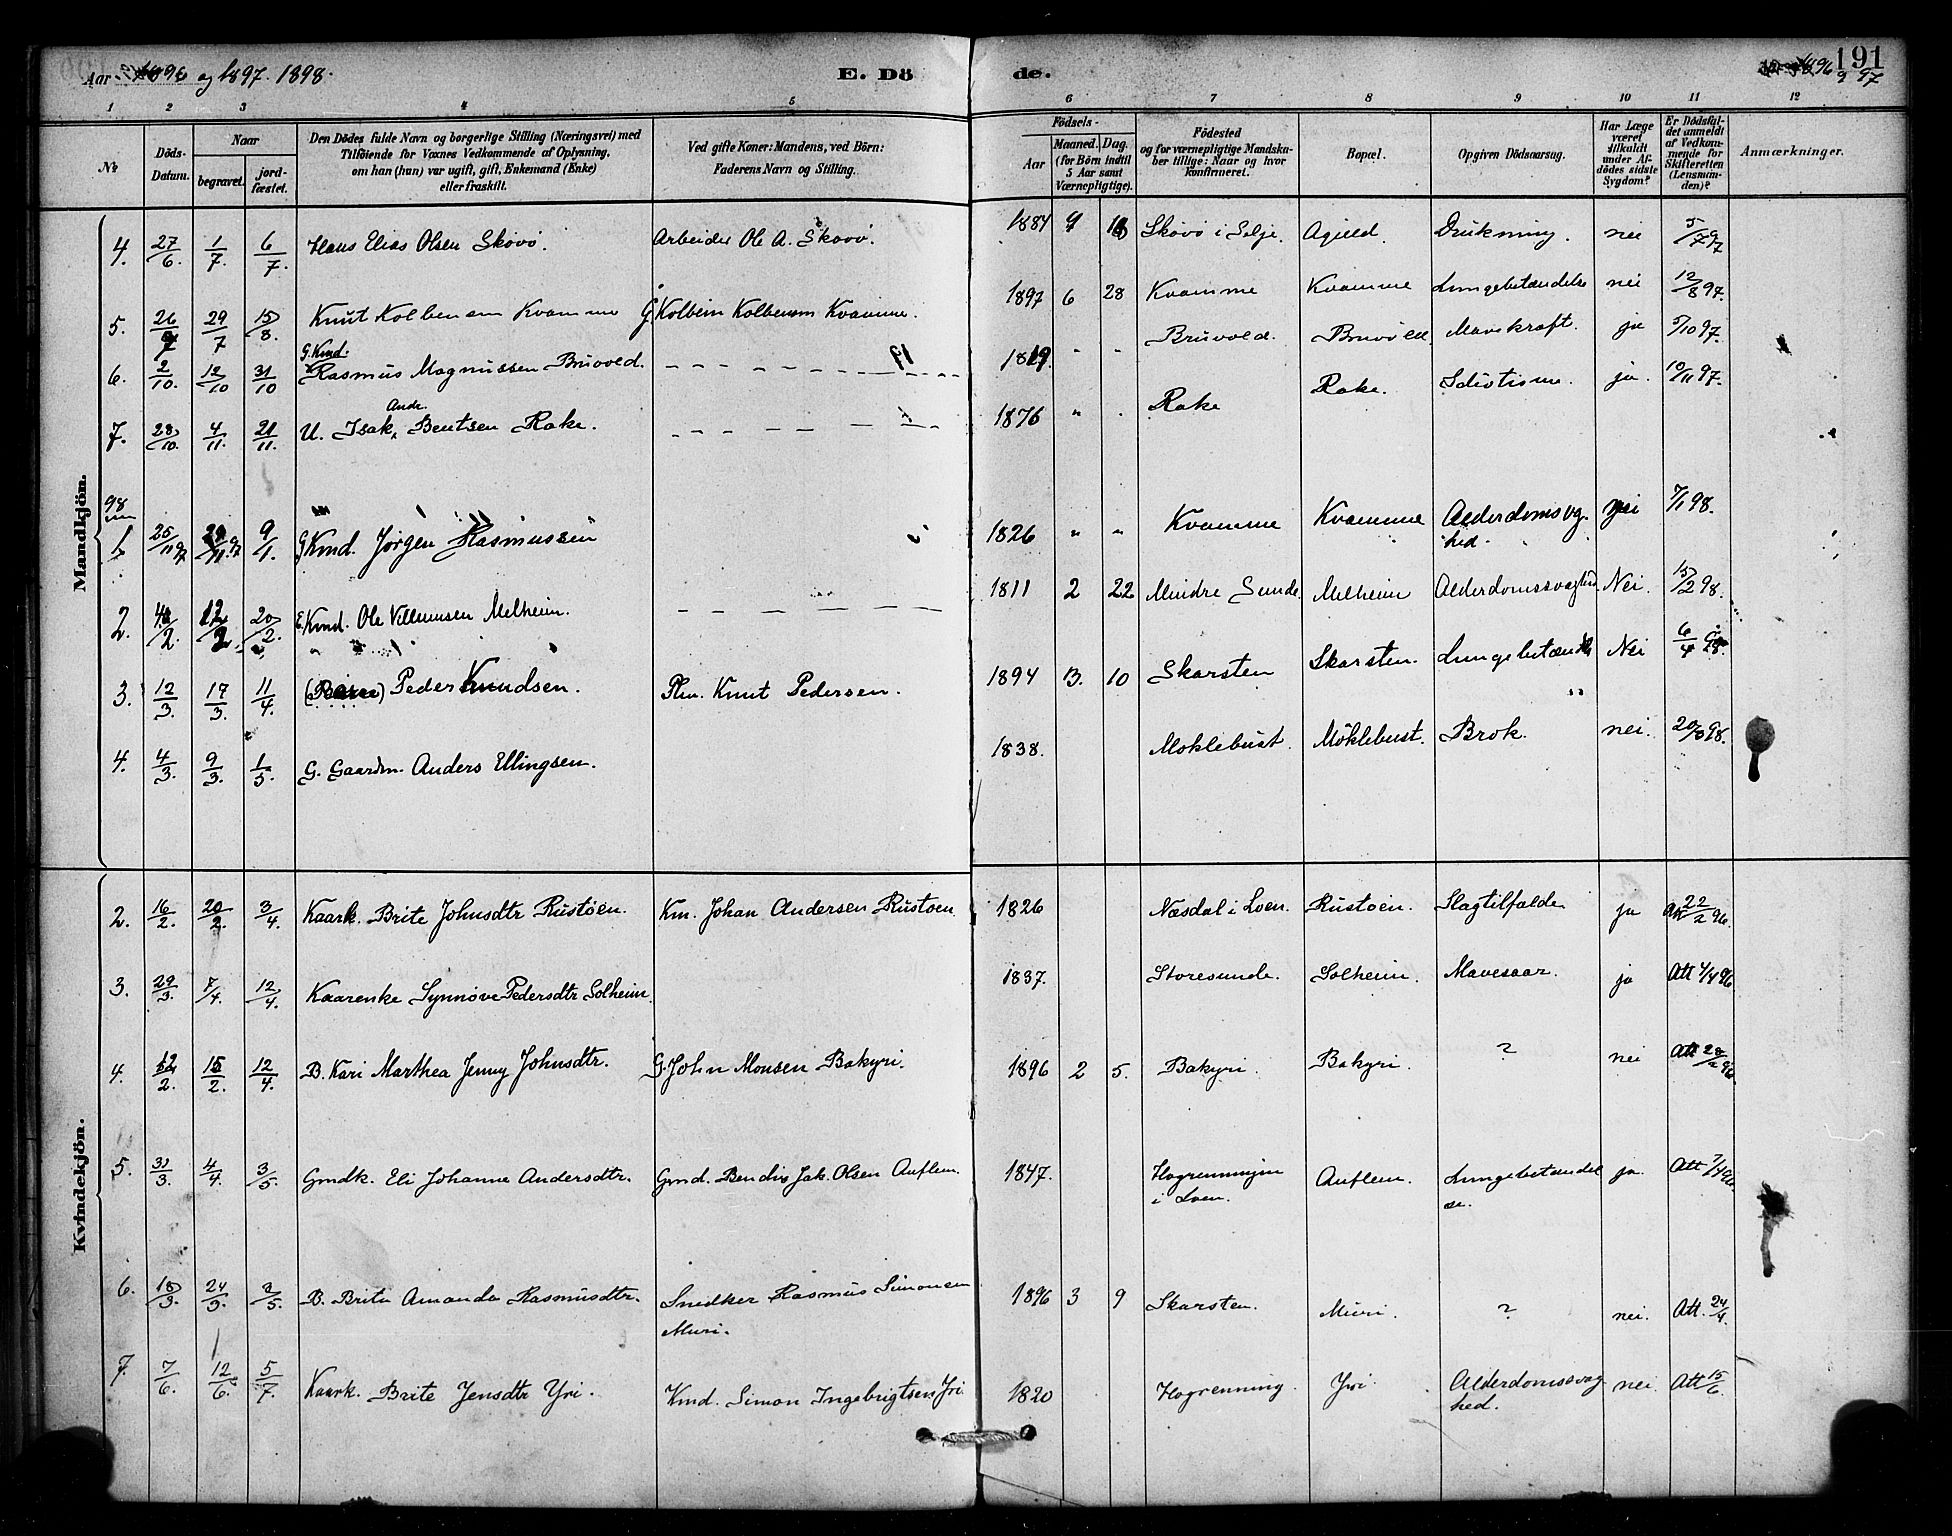 Aar 1896 og 1897. 1898.
E. Dö
de.
191
1896 97
1 2 3 4 5 6 7 8 9 10 11 12
№
Döds-Datum.
Naar
begravet.
jord-fæstet.
Den Dödes fulde Navn og borgerlige Stilling (Næringsvei) med
Tilföiende for Voxnes Vedkommende af Oplysning,
om han (hun) var ugift, gift, Enkemand (Enke)
eller fraskilt.
Ved gifte Koner: Mandens, ved Börn:
Faderens Navn og Stilling.
Födsels-
Aar
Maaned. Dag.
(for Börn indtil
5 Aar samt
Værnepligtige).
Födested
og for værnepligtige Mandska-
ber tillige: Naar og hvor
konfirmeret.
Bopæl.
Opgiven Dödsaarsag.
Har Læge
været
tilkaldt
under Af-
dödes sidste
Sygdom?
Er Dödsfal-
det anmeldt
af Vedkom-
mende for
Skifteretten
(Lensman-
den)?
Anmærkninger.
Mandkjön.
4. 27/6. 1/7. 6/7. Hans Elias Olsen Skovö. Arbeider Ole A. Skovö. 1884 9 Skovö i Selje. Druk­ning. nei 5/7 97
5. 26/7 29/7 15/8. Knut Kolbensen Kvamme G. Kolbein Kolbensen Kvamme. 1897 6 28 Kvamme Kvamme Lungebetændelse nei 12/8 97.
G. Kmd.
6. 2/10. 12/10 31/10 Rasmus Magnussen Bruvold. 1819 " " Bruvold. Bruvold Mavekræft. ja 5/10 97.
Andr.
7. 23/10. 4/11. 21/11. U. Isak Bentsen Rake. 1876 " . Rake Rake. Idiotisme. ja. 10/11 97.
98
1. 25/11 97 29/11 97 9/1. G Kmd. Jörgen Rasmussen 1826 " " Kvamme Kvamme Alderdomsvag-
hed. nei 7/1 98.
2. 4/2. 12/2. 20/2. E. Kmd. Ole Villumsen Melheim. 1811 2 22 Mindre Sunde. Melheim Alderdomssvaghed Nei. 15/2 98.
3. 12/3. 17/3. 11/4. Peder Knudsen. Plm. Knut Pedersen. 1894 13. 10 Skarsten Skarsten. Lungebetænd Nei 6/4 98.
4. 4/3. 9/3. 1/5. G. Gaardm. Anders Ellingsen. 1838. Moklebust. Möklebust. Brok. nei. 20/3 98.
Kvindekjön.
2. 16/2. 20/2. 3/4. Kaark. Brite Johnsdtr Rustöen. Km. Johan Andersen Rustoen. 1826 Næsdal i Loen. Rustoen. Slagtilfælde ja Att 22/2 96.
3. 29/3. 7/4. 12/4. Kaarenke Synnöve Pedersdtr Solheim. 1837. Storesunde. Solheim. Mavesaar. ja Att 4/4 96
4. 12/2. 15/2. 12/4. B. Kari Marthea Jenny Johnsdtr. G. John Monsen Bakyri. 1896 2 5. Bakyri. Bakyri. ? nei Att 28/2 96.
5. 31/3. 4/4. 3/5. Gmdk. Eli Johanne Andersdtr. Gmd. Bendix Jak. Olsen Auflem. 1847. Hogrenningen
i Loen. Auflem. Lungebetændel
se. ja. Att 7/4 96.
6. 18/3. 24/3. 3/5. B. Brite Amanda Rasmusdtr. Snedker Rasmus Simonsen
Muri. 1896 3 9 Skarsten. Muri. ? nei. Att. 24/4.
7. 7/6. 12/6. 5/7. Kaark. Brite Jensdtr Yri. Kmd. Simon Ingebrigtsen Yri 1820 Hogrenning. Yri. Alderdomssvag
hed. nei. Att 15/6.